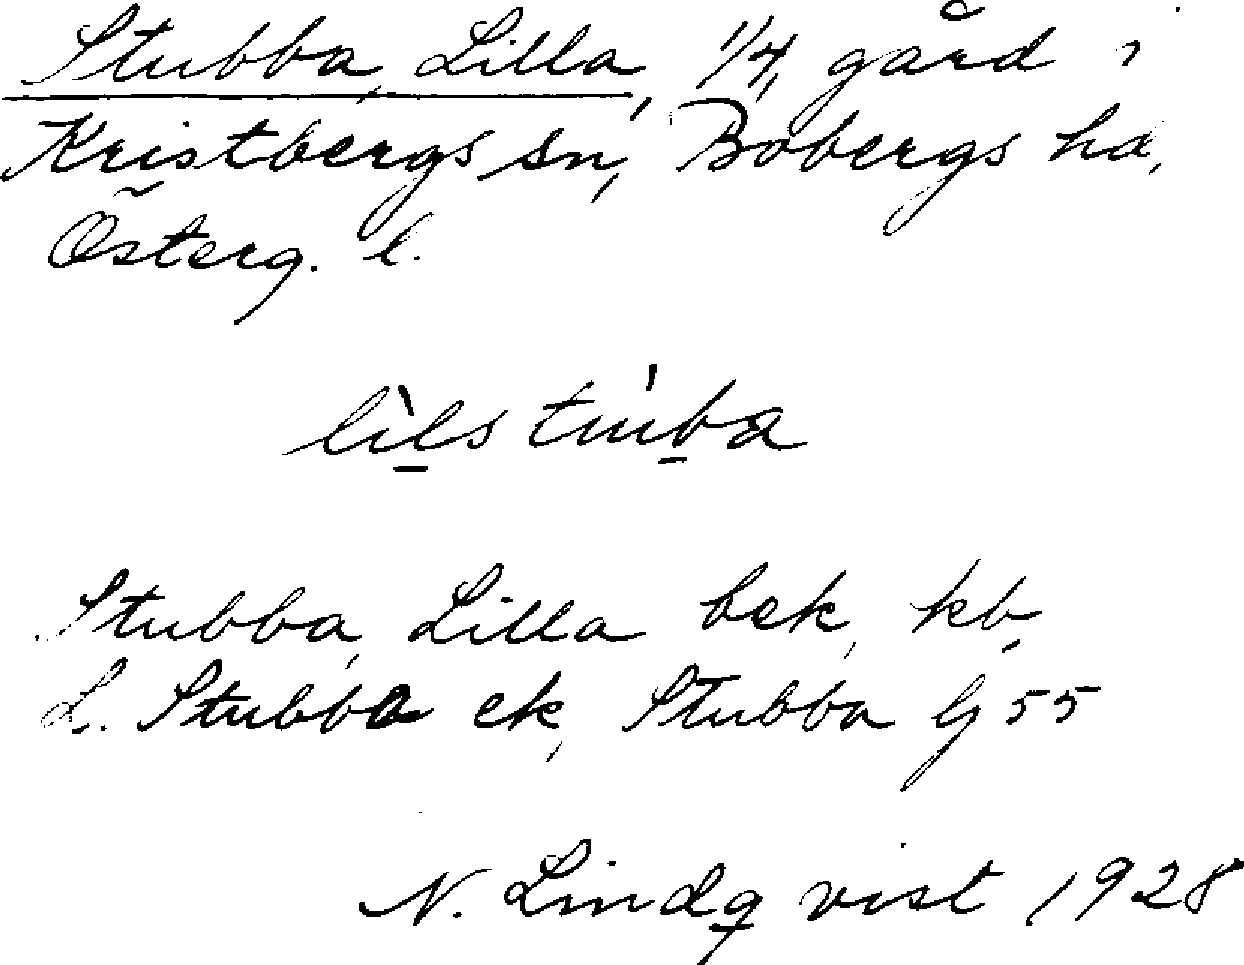 Stubba, Lilla, 1/4, gård i
Kristbergs sn, Bobergs hd,
Österg. l.
Stubba, Lilla bek, kb,
L. Stubba ek, Stubba G 55
N. Lindqvist 1928